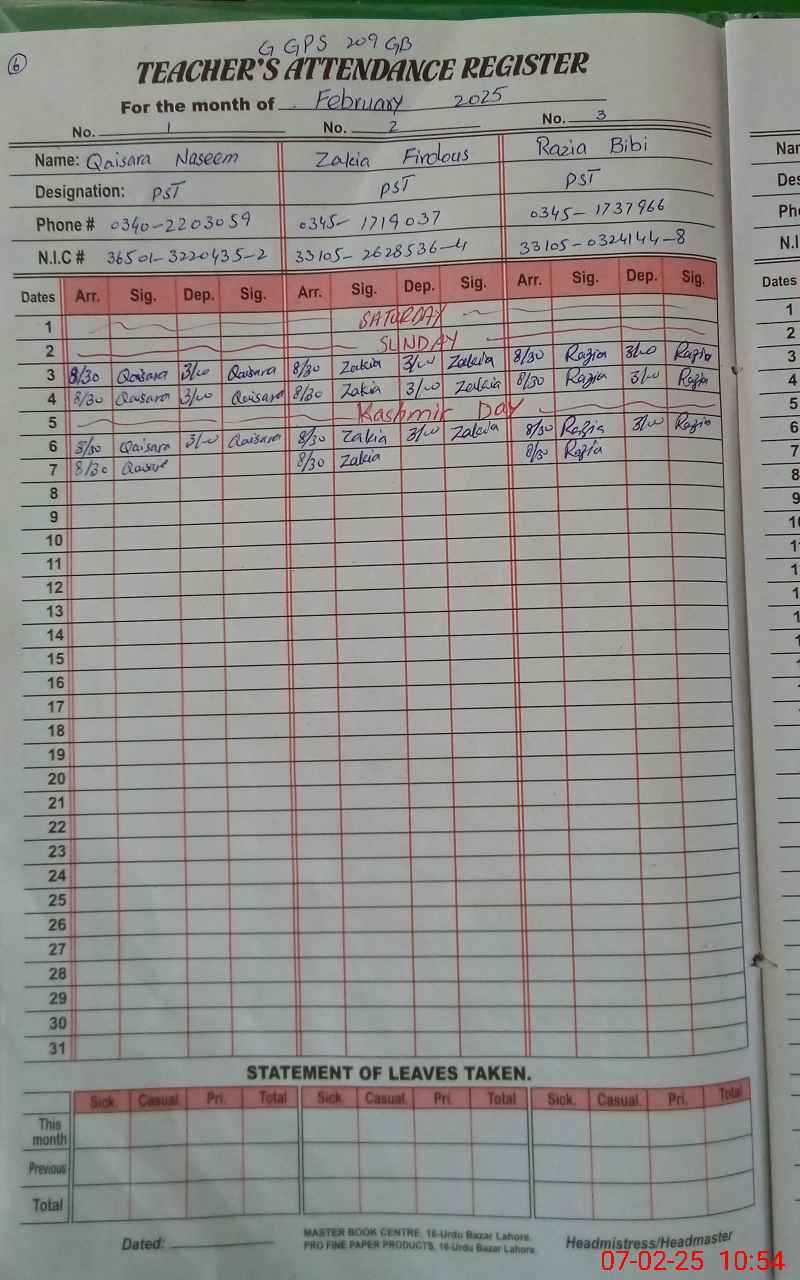 6
G GPS 209 GB
TEACHER'S ATTENDANCE REGISTER
For the month of February 2025
No. 1 No. 2 No. 3
Name: Qaisara Naseem Zakia Firdous Razia Bibi
Designation: PST PST PST
Phone # 0340-2203059 0345-1719037 0345-1737966
N.I.C # 36501-3220435-2 33105-2628536-4 33105-0324144-8
Dates Arr. Sig. Dep. Sig. Arr. Sig. Dep. Sig. Arr. Sig. Dep. Sig.
1 SATURDAY
2 SUNDAY
3 8/30 Qaisara 3/00 Qaisara 8/30 Zakia 3/00 Zakia 8/30 Razia 3/00 Razia
4 8/30 Qaisara 3/00 Qaisara 8/30 Zakia 3/00 Zakia 8/30 Razia 3/00 Razia
5 Kashmir Day
6 8/30 Qaisara 3/00 Qaisara 8/30 Zakia 3/00 Zakia 8/30 Razia 3/00 Razia
7 8/30 Qaisara 8/30 Zakia 8/30 Razia
8
9
10
11
12
13
14
15
16
17
18
19
20
21
22
23
24
25
26
27
28
29
30
31
STATEMENT OF LEAVES TAKEN.
Sick. Casual. Pri. Total Sick. Casual. Pri. Total Sick. Casual. Pri. Total
This month
Previous
Total
Dated: MASTER BOOK CENTRE, 16-Urdu Bazar Lahore. Headmistress/Headmaster
PRO FINE PAPER PRODUCTS, 16-Urdu Bazar Lahore.
07-02-25 10:54
Dates
1
2
3
4
5
6
7
8
9